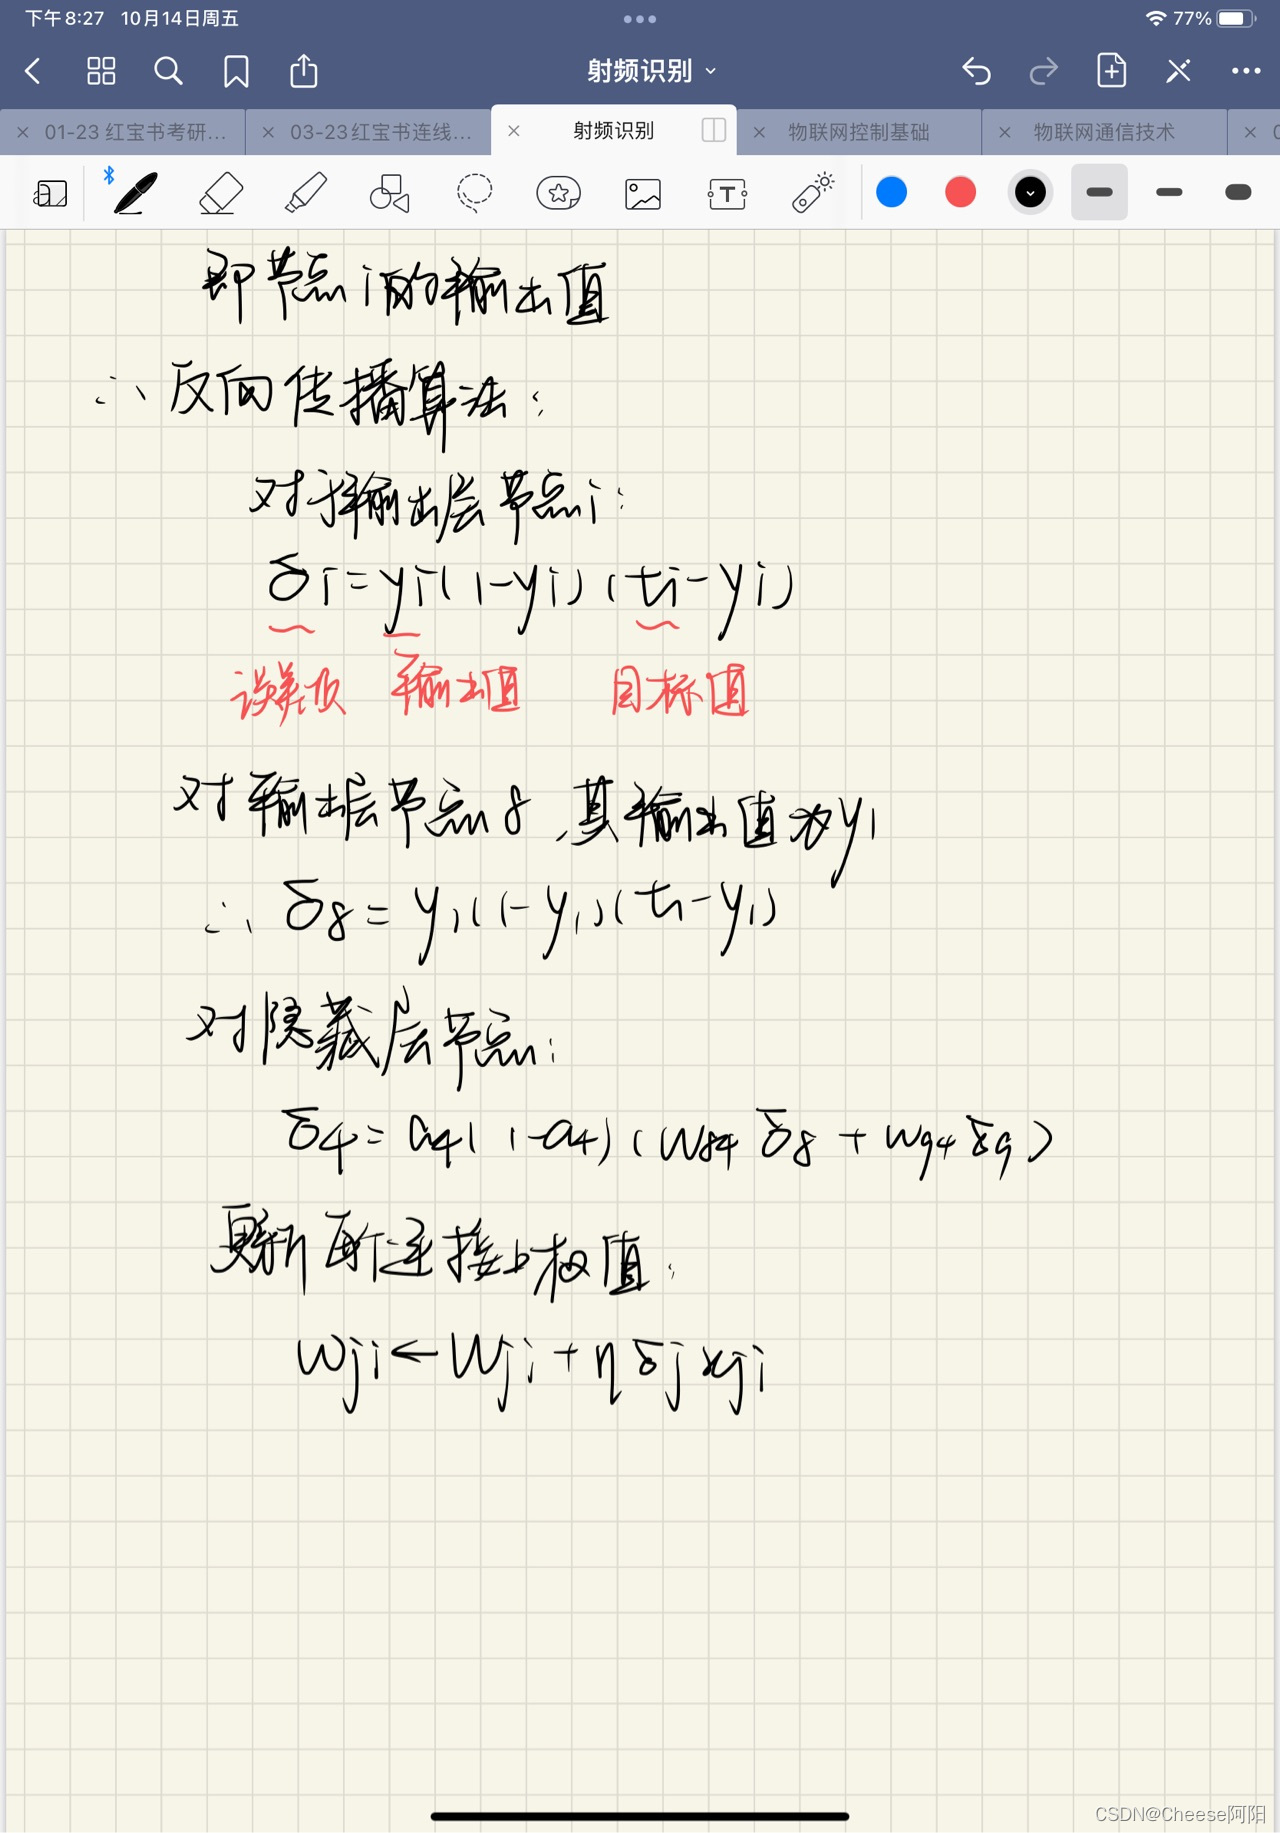 下午8:27 10月14日周五 77%
射频识别
01-23 红宝书考研... 03-23红宝书连线... 射频识别 物联网控制基础 物联网通信技术
即节点i的输出值
∴反向传播算法:
对于输出层节点i:
δi=yi(1-yi)(ti-yi)
误差项 输出值 目标值
对输出层节点8,其输出值为y1
∴ δ8=y1(1-y1)(t1-y1)
对隐藏层节点:
δ4=a4(1-a4)(w84δ8+w94δ9)
更新每个连接上权值:
wji←wji+ηδjxji
CSDN@Cheese阿阳